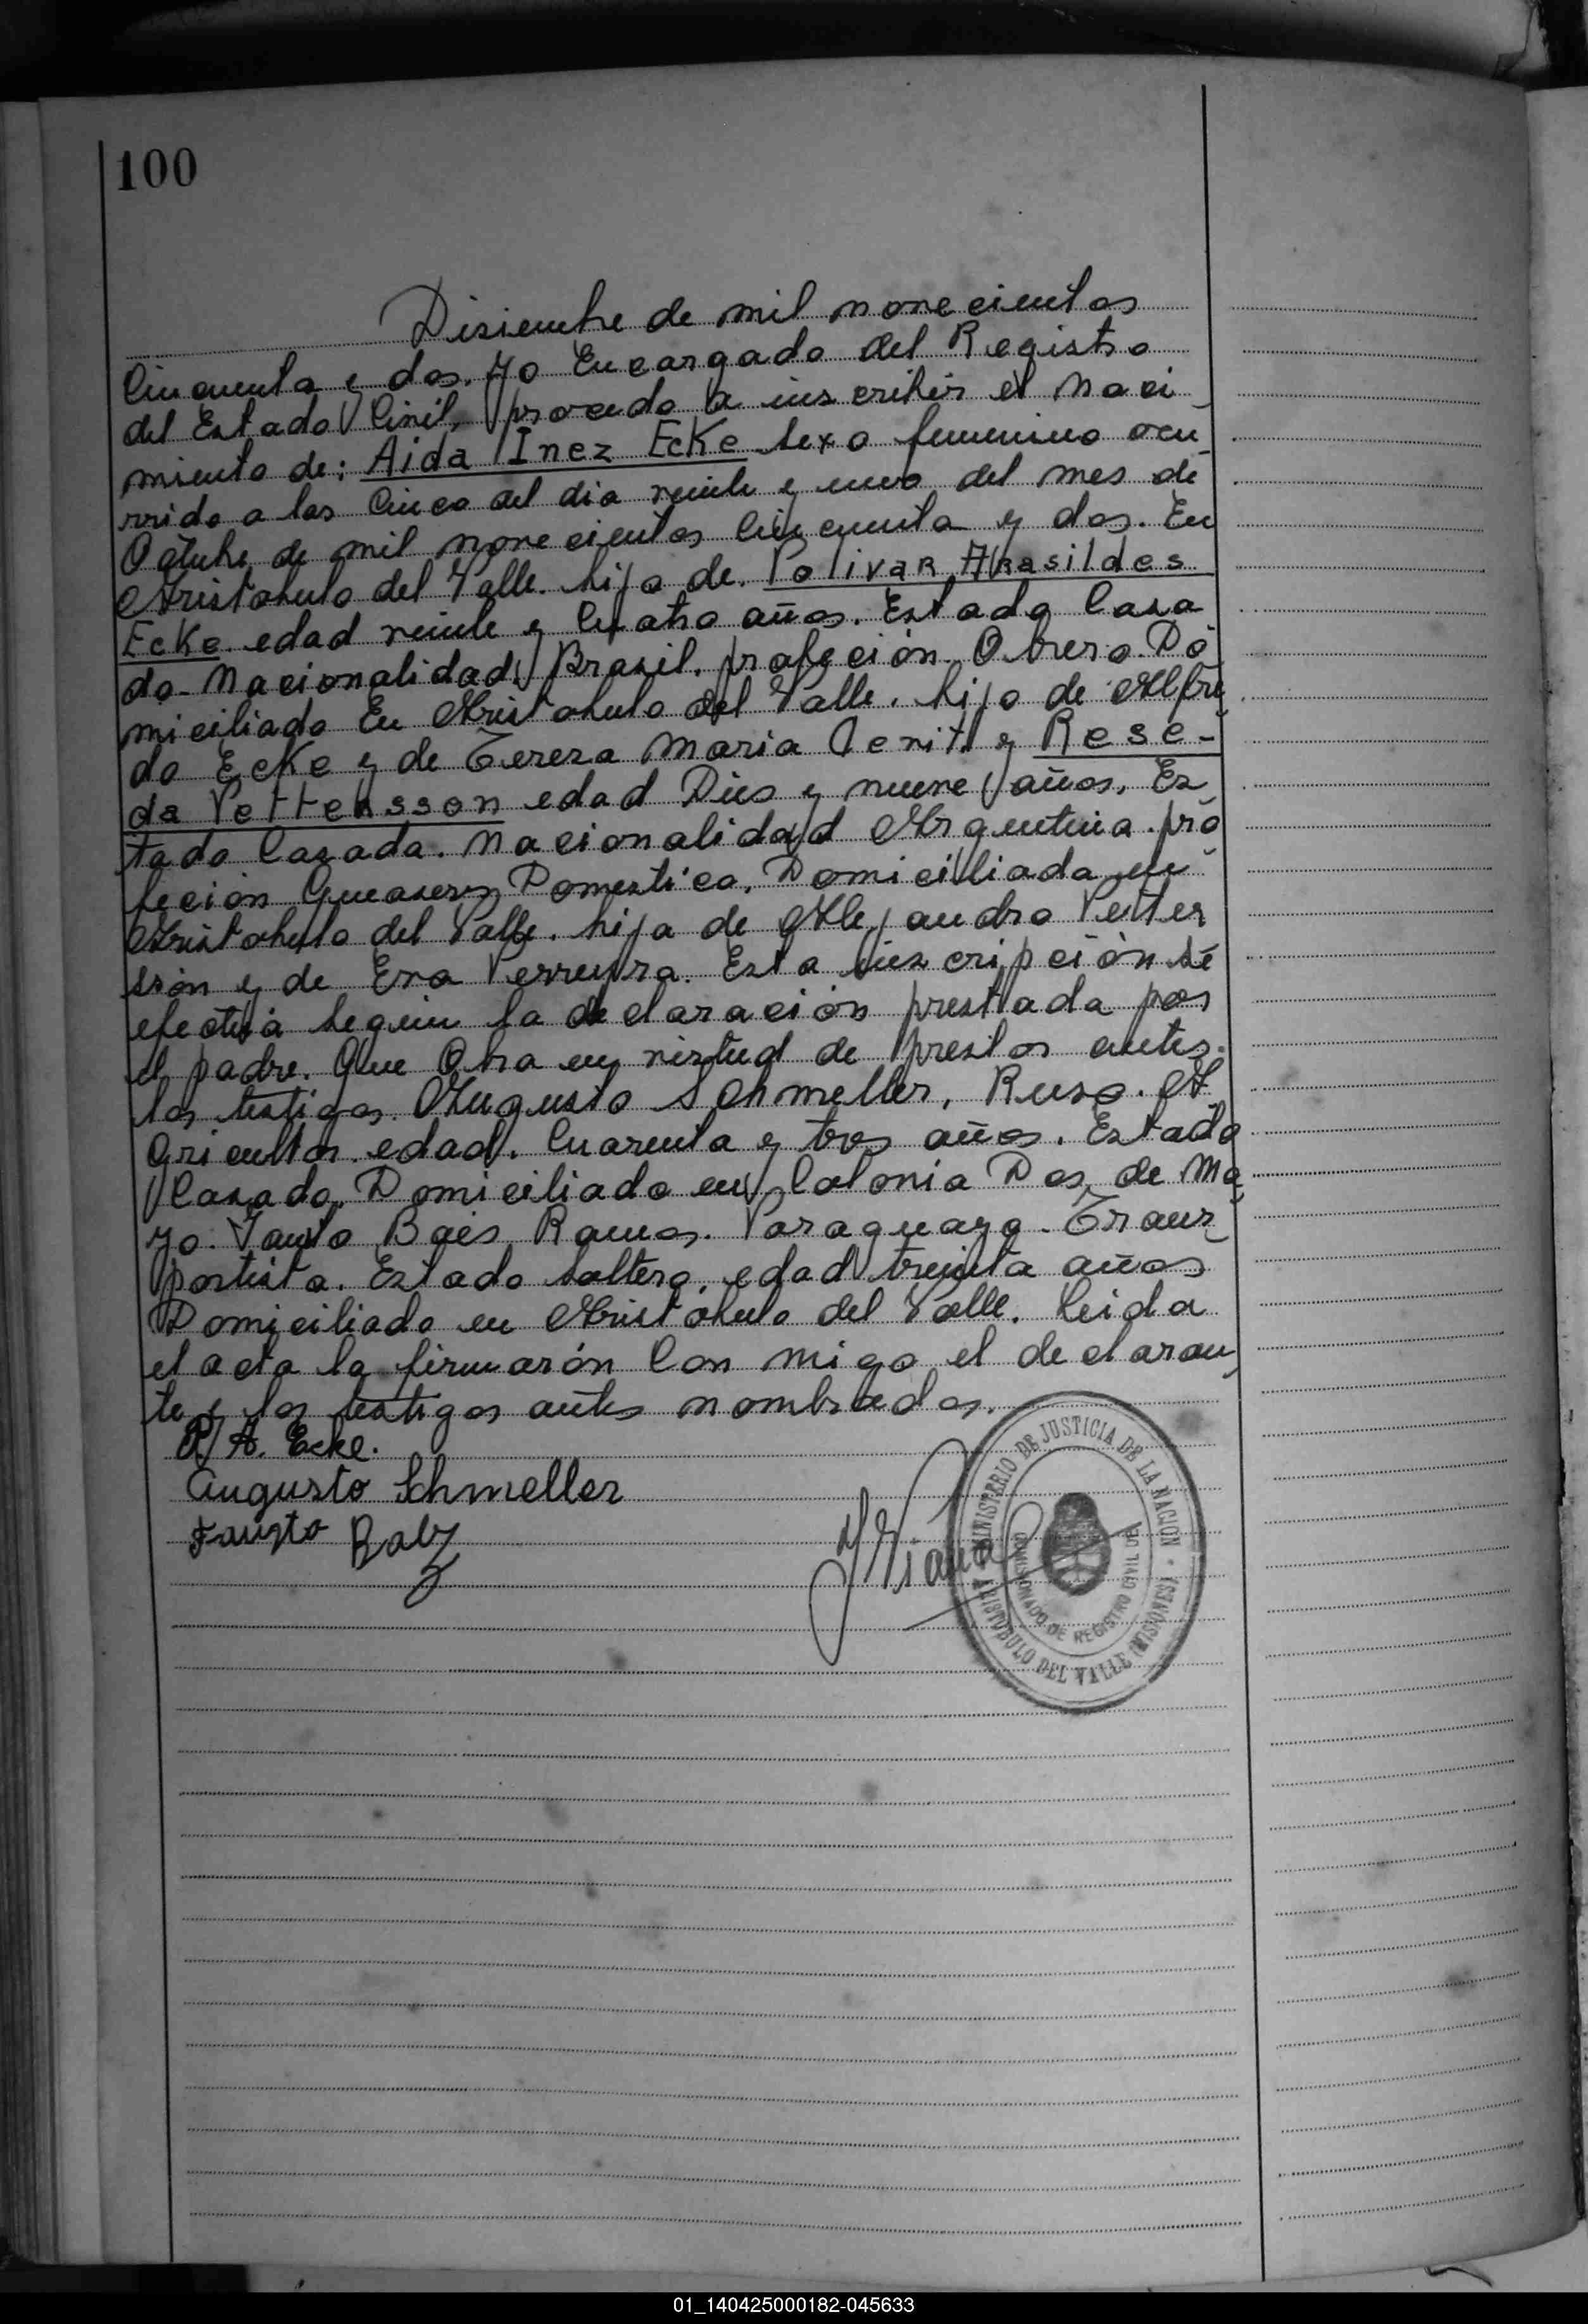 100
Disiembre de mil novecientos
Cincuenta y dos. Yo Encargado del Registro
del Estado Civil, procedo a inscribir el Naci
miento de: Aida Inez Ecke sexo femenino ocu
rrido a las Cinco del dia veinte y uno del mes de
Octubre de mil novecientos Cincuenta y dos. En
Aristobulo del Valle. hija de. Polivar Abrasildes
Ecke. edad veinte y Cuatro años. Estado Casa
do. Nacionalidad Brasil. profeción Obrero. Do
miciliado En Aristobulo del Valle. hijo de Alfre
do Ecke y de Tereza Maria y Rese-
da Pettersson edad Dies y nueve años. Es
tado Casada. Nacionalidad Argentina. pro
feción Domestica. Domiciliada en
Aristobulo del Valle. hija de Alejandro Petter
sson y de Eva Perreyra. Esta inscripción se
efectuá según la declaración prestada por
el padre. Que Obra en virtud de antes.
los testigos. Augusto Schmeller, Ruso. A
gricultor. edad. Cuarenta y tres años. Estado
Casado. Domiciliado en Colonia Dos de Ma
yo. Baés Ramos. Paraguayo. Trans
portista. Estado Soltero. edad treinta años
Domiciliado en Aristobulo del Valle. Leida
el acta la firmarón Con migo el declaran
te y los testigos antes nombrados.
P. A. Ecke.
Augusto Schmeller
Fausto Baez
MINISTERIO DE JUSTICIA DE LA NACION
COMISIONADO DE REGISTRO CIVIL DE
ARISTOBULO DEL VALLE (MISIONES)
01_140425000182-045633